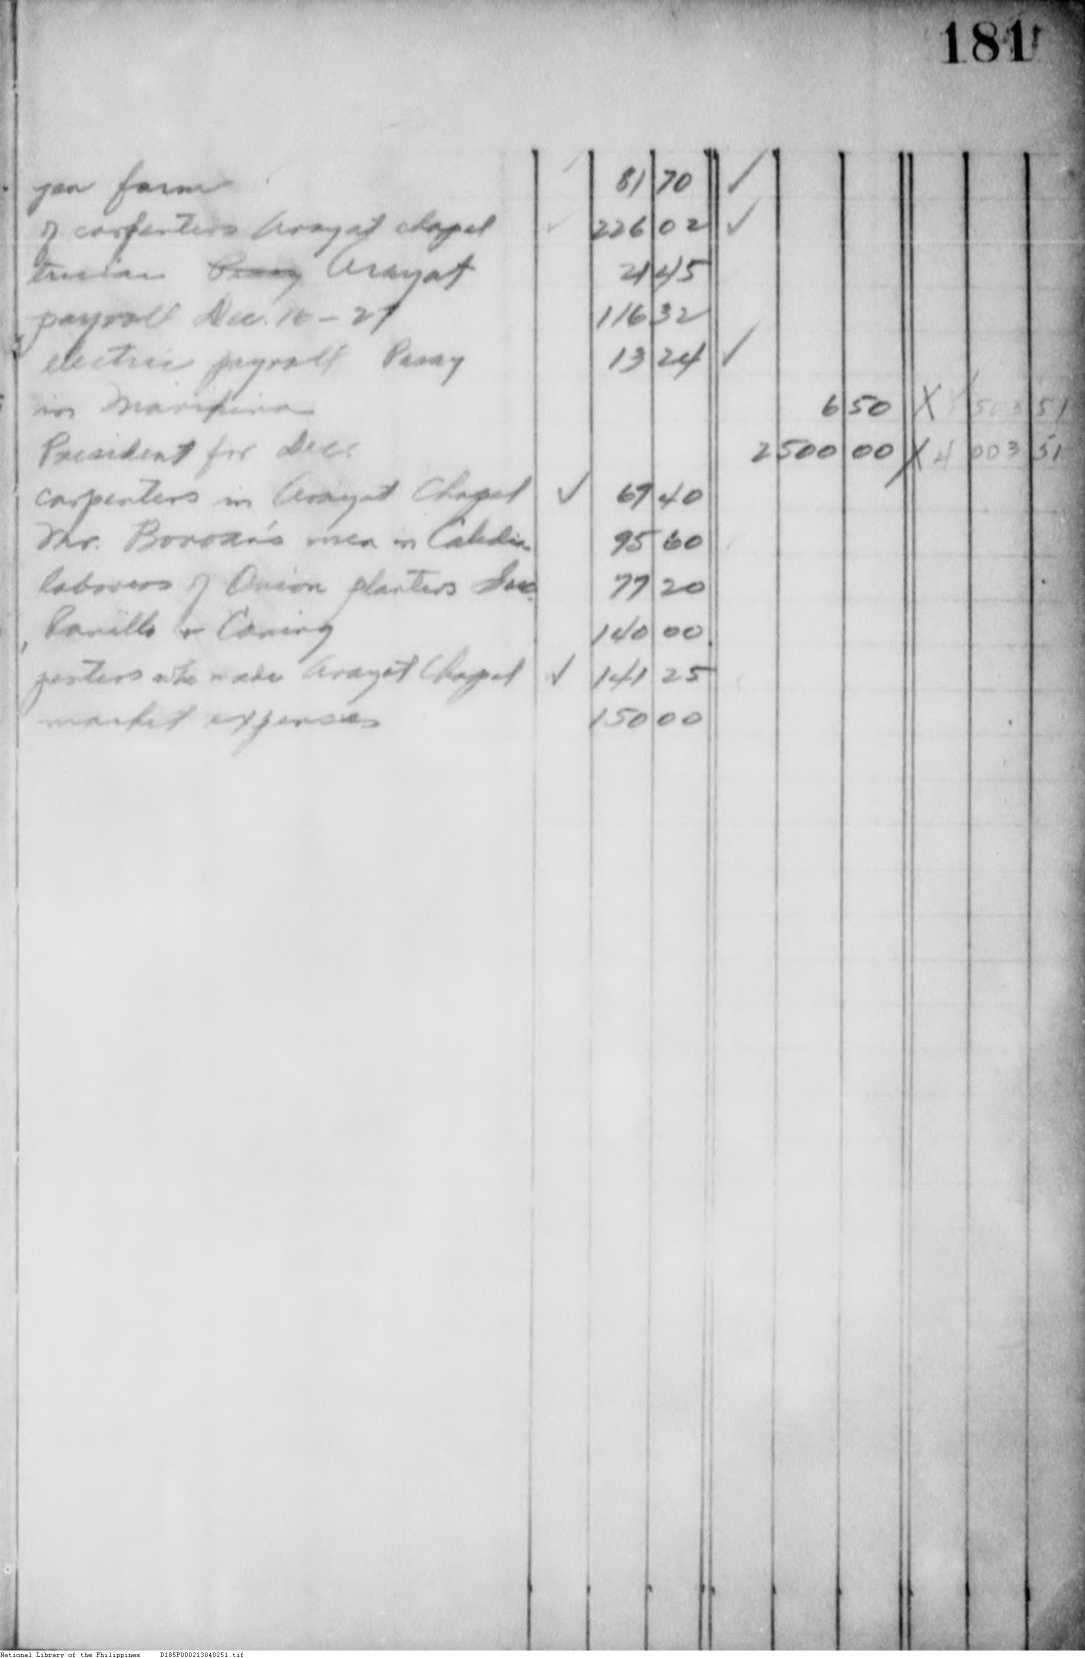 181
farm 81 70 ✓
of carpenters Arayat chapel ✓ 226 02 ✓
trician Pasay Arayat 21 45
payroll Dec. 16 - 27 116 32
electric payroll Pasay 13 24 ✓
in Marikina 6 50 X 51
President for Dec. 2500 00 X 4 003 51
carpenters in Arayat Chapel ✓ 69 40
Mr. men in 95 60
laborers of Onion planters 77 20
& 140 00
penters who made Arayat Chapel ✓ 141 25
market expenses 150 00
National Library of the Philippines D185P000213040251.tif